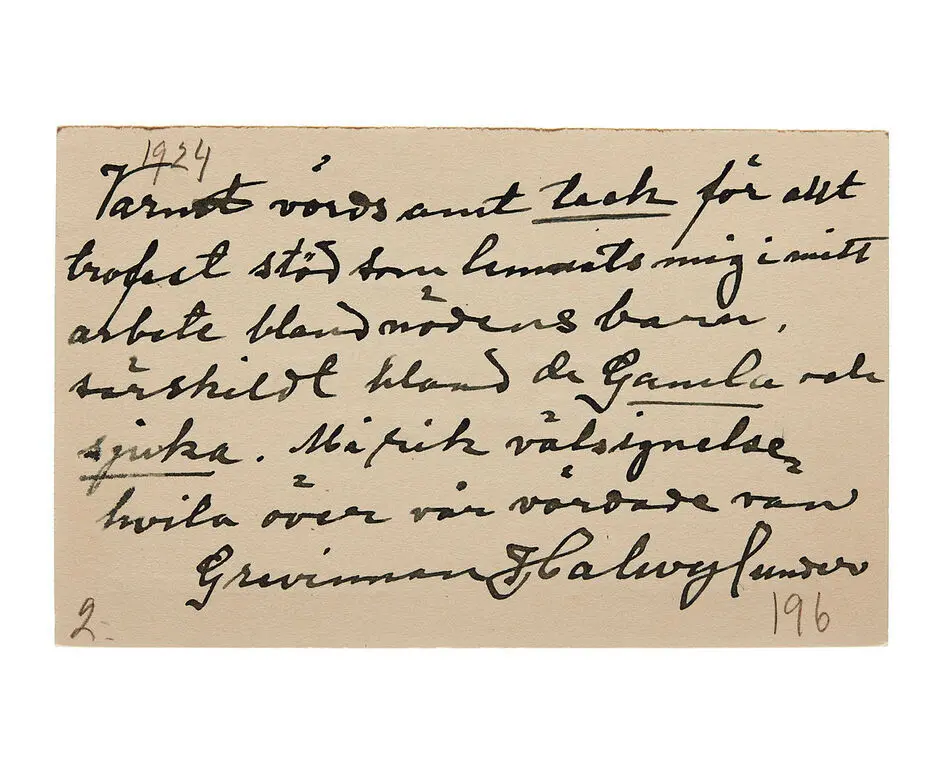 1924
Varmt vördsamt tack för allt
trofast stöd som lemnats mig i mitt
arbete bland nödens barn,
särskildt bland de Gamla och
sjuka. Må rik välsignelse
hvila över vår vördade vän
Grevinnan Hallwyl under
2- 196